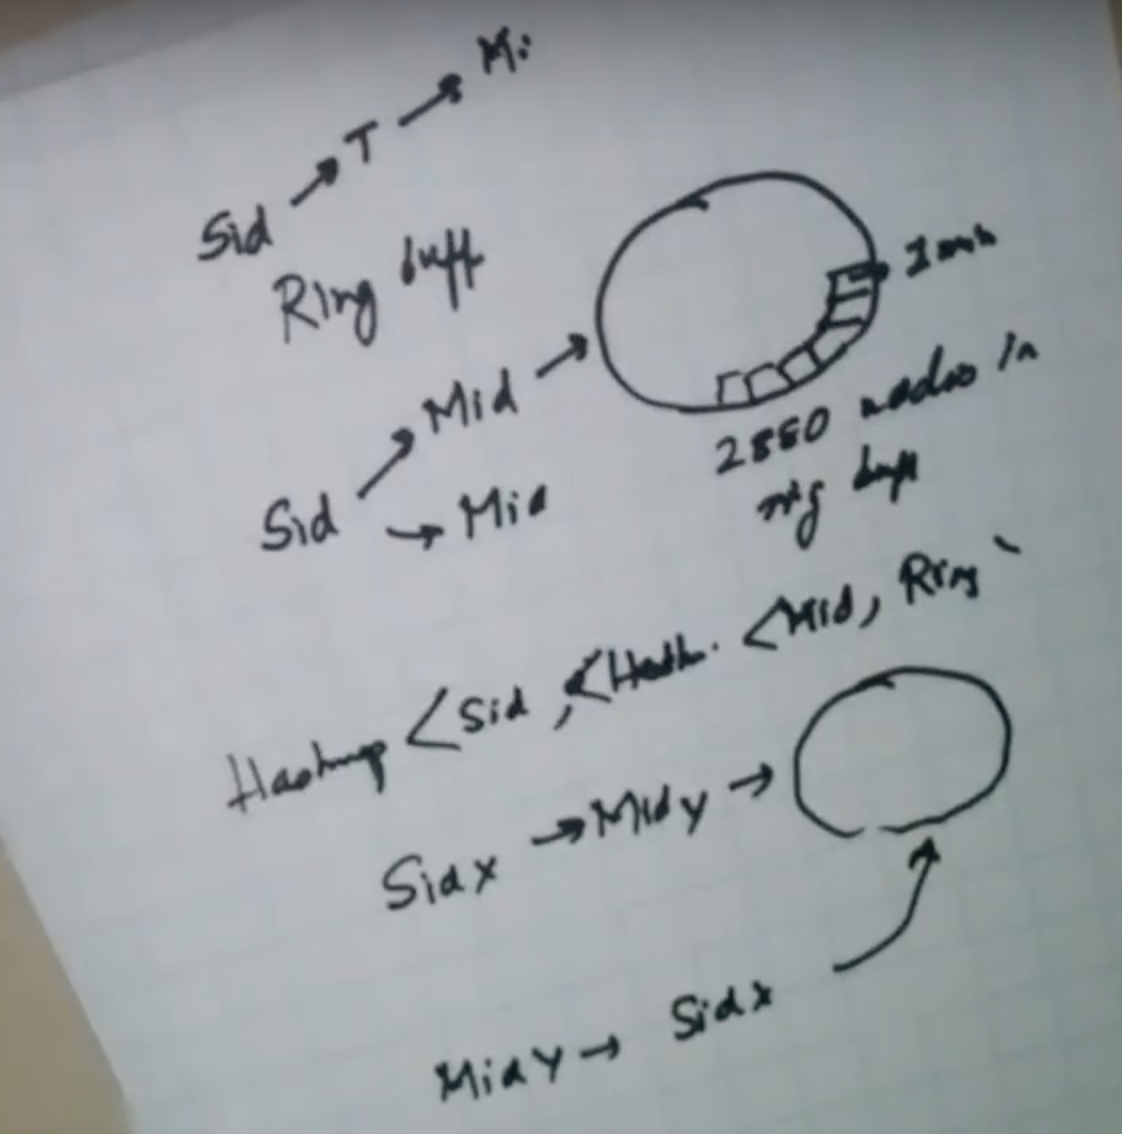 Sid → T → Mi
Ring buff
Sid → Mid →
→ Mid
1 min
2880 nodes in
ring buff
Hashmap < Sid, < Hash. < Mid, Ring
Sid x → Mid y →
Mid y → Sid x